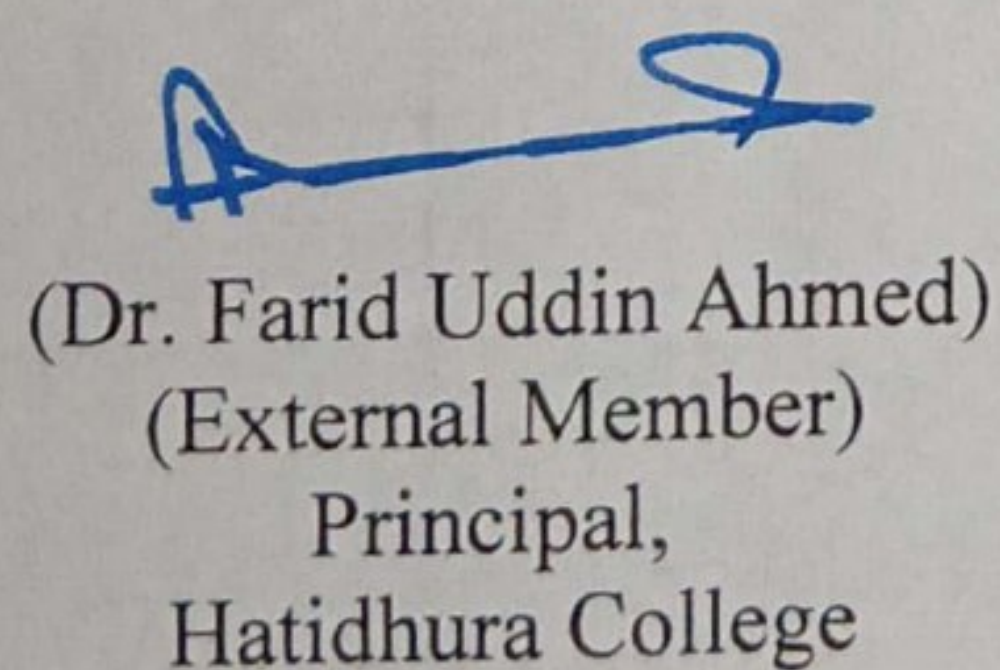 (Dr. Farid Uddin Ahmed)
(External Member)
Principal,
Hatidhura College